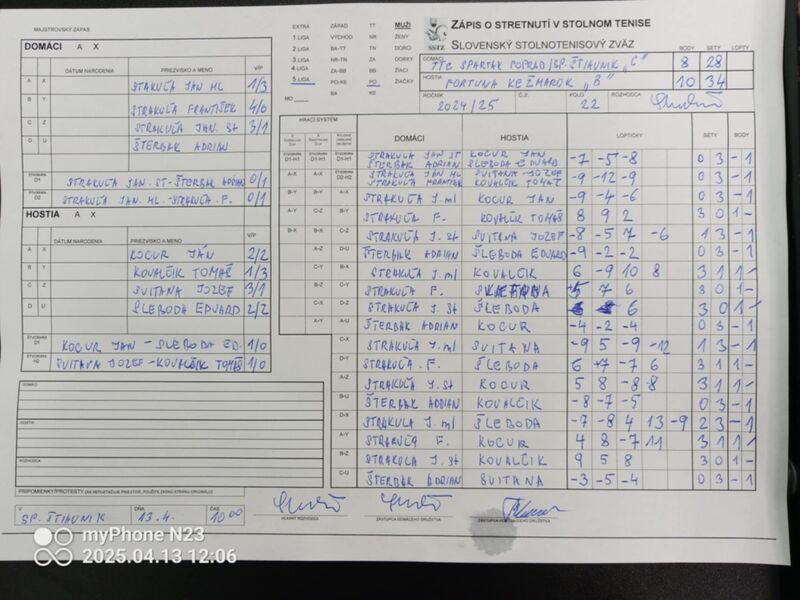 MAJSTROVSKÝ ZÁPAS
DOMÁCI A X
DÁTUM NARODENIA PRIEZVISKO A MENO V/P
A X STAKUĽA JAN ML 1/3
B Y STRAKUĽA FRANTIŠEK 4/0
C Z STRAKUĽA JAN. St 3/1
D U ŠTERBAK ADRIAN
ŠTVORHRA D1 STRAKUĽA JAN. ST-ŠTERBAK ADRIAN 0/1
ŠTVORHRA D2 STRAKUĽA JAN. ML.-STRAKUĽA. F. 0/1
HOSTIA A X
DÁTUM NARODENIA PRIEZVISKO A MENO V/P
A X KOCUR JÁN 2/2
B Y KOVALČIK TOMÁŠ 1/3
C Z SVITANA JOZEF 3/1
D U ŠLEBODA EDUARD 2/2
ŠTVORHRA D1 KOCUR JAN - SLEBODA ED. 1/0
ŠTVORHRA H2 SVITANA JOZEF-KOVALČIK TOMÁŠ 1/0
DOMÁCI
HOSTIA
ROZHODCA
PRIPOMIENKY/PROTESTY (AK NEPOSTAČUJE PRIESTOR, POUŽITE ZADNÚ STRANU ORIGINÁLU)
V SP. ŠTIAVNIK DŇA 13.4. ČAS 10 00
EXTRA ZÁPAD TT MUŽI
1.LIGA VÝCHOD NR ŽENY
2.LIGA BA-TT TN DORCI
3.LIGA NR-TN ZA DORKY
4.LIGA ZA-BB BB ŽIACI
5.LIGA PO-KE PO ŽIAČKY
MO BA KE
SSTZ
ZÁPIS O STRETNUTÍ V STOLNOM TENISE
SLOVENSKÝ STOLNOTENISOVÝ ZVÄZ
BODY SETY LOPTY
DOMÁCI TTC SPARTAK POPRAD/SP. ŠTIAVNIK „C" 8 28
HOSTIA FORTUNA KEŽMAROK „B" 10 34
ROČNÍK 2024/25 Č.Z. KOLO 22 ROZHODCA
HRACÍ SYSTÉM
DOMÁCI HOSTIA LOPTIČKY SETY BODY
D1-H1 D1-H1 D1-H1 STRAKUĽA JAN ST ŠTERBAK ADRIAN KOCUR JAN SLEBODA EDUARD -7 -5 -8 0 3 - 1
A-X A-X D2-H2 STRAKUĽA JAN ML STRAKUĽA FRANTIŠEK SVITANA JOZEF KOVALČIK TOMAŠ -9 -12 -9 0 3 - 1
B-Y B-Y A-X STRAKUĽA J. ml KOCUR JAN -9 -4 -6 0 3 - 1
A-Y C-Z B-Y STRAKUĽA F. KOVALČIK TOMÁŠ 8 9 2 3 0 1 -
B-X B-X C-Z STRAKUĽA J. st SVITANA JOZEF -8 -5 7 -6 1 3 - 1
A-Z D-U ŠTERBAK ADRIAN ŠLEBODA EDUARD -9 -2 -2 0 3 - 1
C-Y B-X STRAKUĽA J. ml KOVALČIK 6 -9 10 8 3 1 1 -
B-Z C-Y STRAKUĽA F. 7 6 3 0 1 -
C-X D-Z STRAKUĽA J. St ŠLEBODA 6 3 0 1 -
A-Y A-U ŠTERBAK ADRIAN KOCUR -4 -2 -4 0 3 - 1
C-X STRAKUĽA J. ml SVITANA -9 5 -9 -12 1 3 - 1
D-Y STRAKUĽA. F. ŠLEBODA 6 +7 -7 6 3 1 1 -
A-Z STRAKUĽA J. st KOCUR 5 8 -8 8 3 1 1 -
B-U ŠTERBAK ADRIAN KOVALČIK -8 -7 -5 0 3 - 1
D-X STRAKULA J. ml ŠLEBODA -7 -8 4 13 -9 2 3 - 1
A-Y STRAKUĽA F. KOCUR 4 8 -7 11 3 1 1 -
B-Z STRAKOLA J. st KOVALČIK 9 5 8 3 0 1 -
C-U ŠTERBAK ADRIAN SVITANA -3 -5 -4 0 3 - 1
HLAVNÝ ROZHODCA ZÁSTUPCA DOMÁCEHO DRUŽSTVA
myPhone N23
2025.04.13 12:06